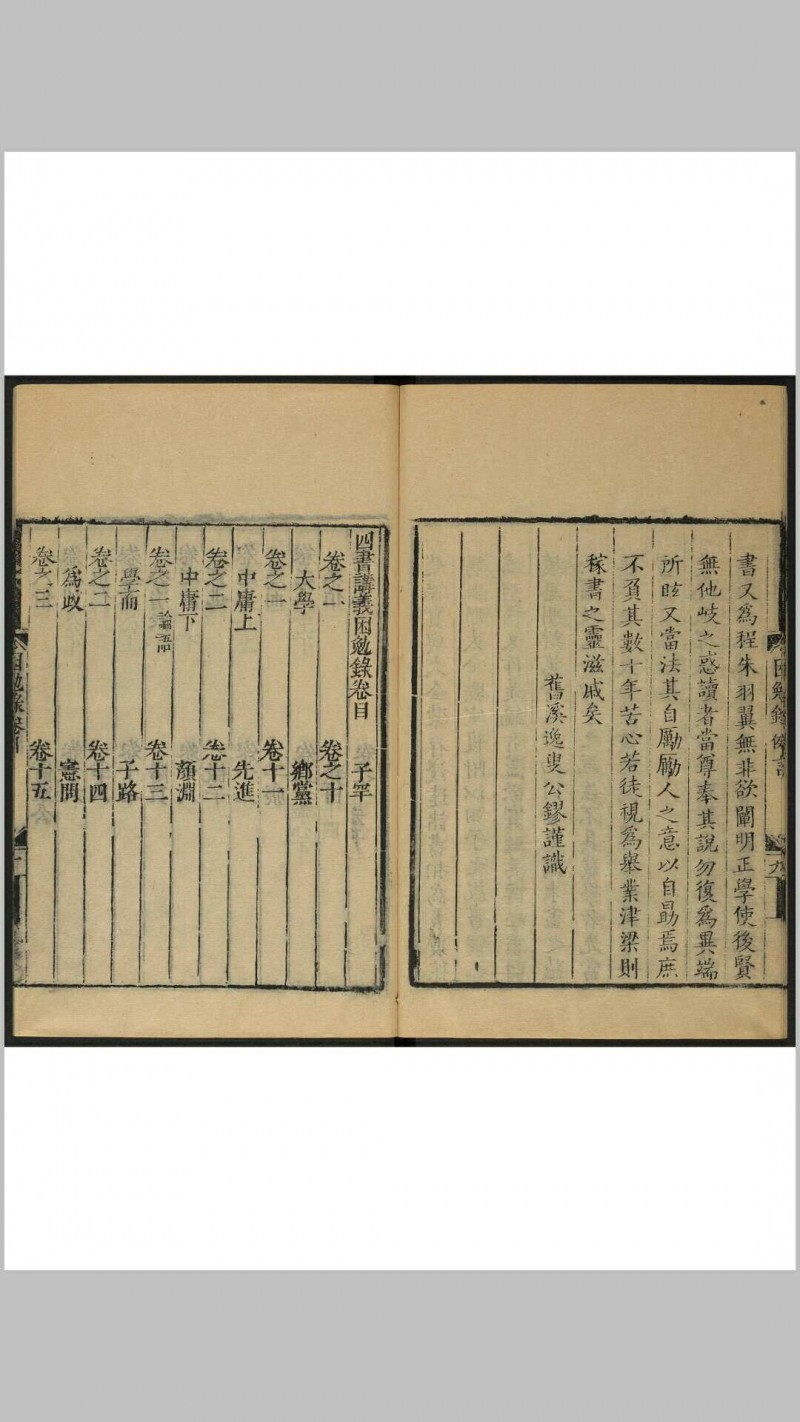 書又為程朱羽翼無非欲闡明正學使後賢
無他岐之惑讀者當尊奉其說勿復為異端
所眩又當法其自勵勵人之意以自勗焉庶
不負其數十年苦心若徒視為舉業津梁則
稼書之靈滋戚矣
舊溪逸叟公鏐謹識
四書講義困勉錄卷目
子罕
卷之一
卷之十
大學
鄉黨
卷之一
卷十一
中庸上
先進
卷之二
卷十二
中庸下
顏淵
卷之一論語
卷十三
學而
子路
卷之二
卷十四
為政
憲問
卷之三
卷十五